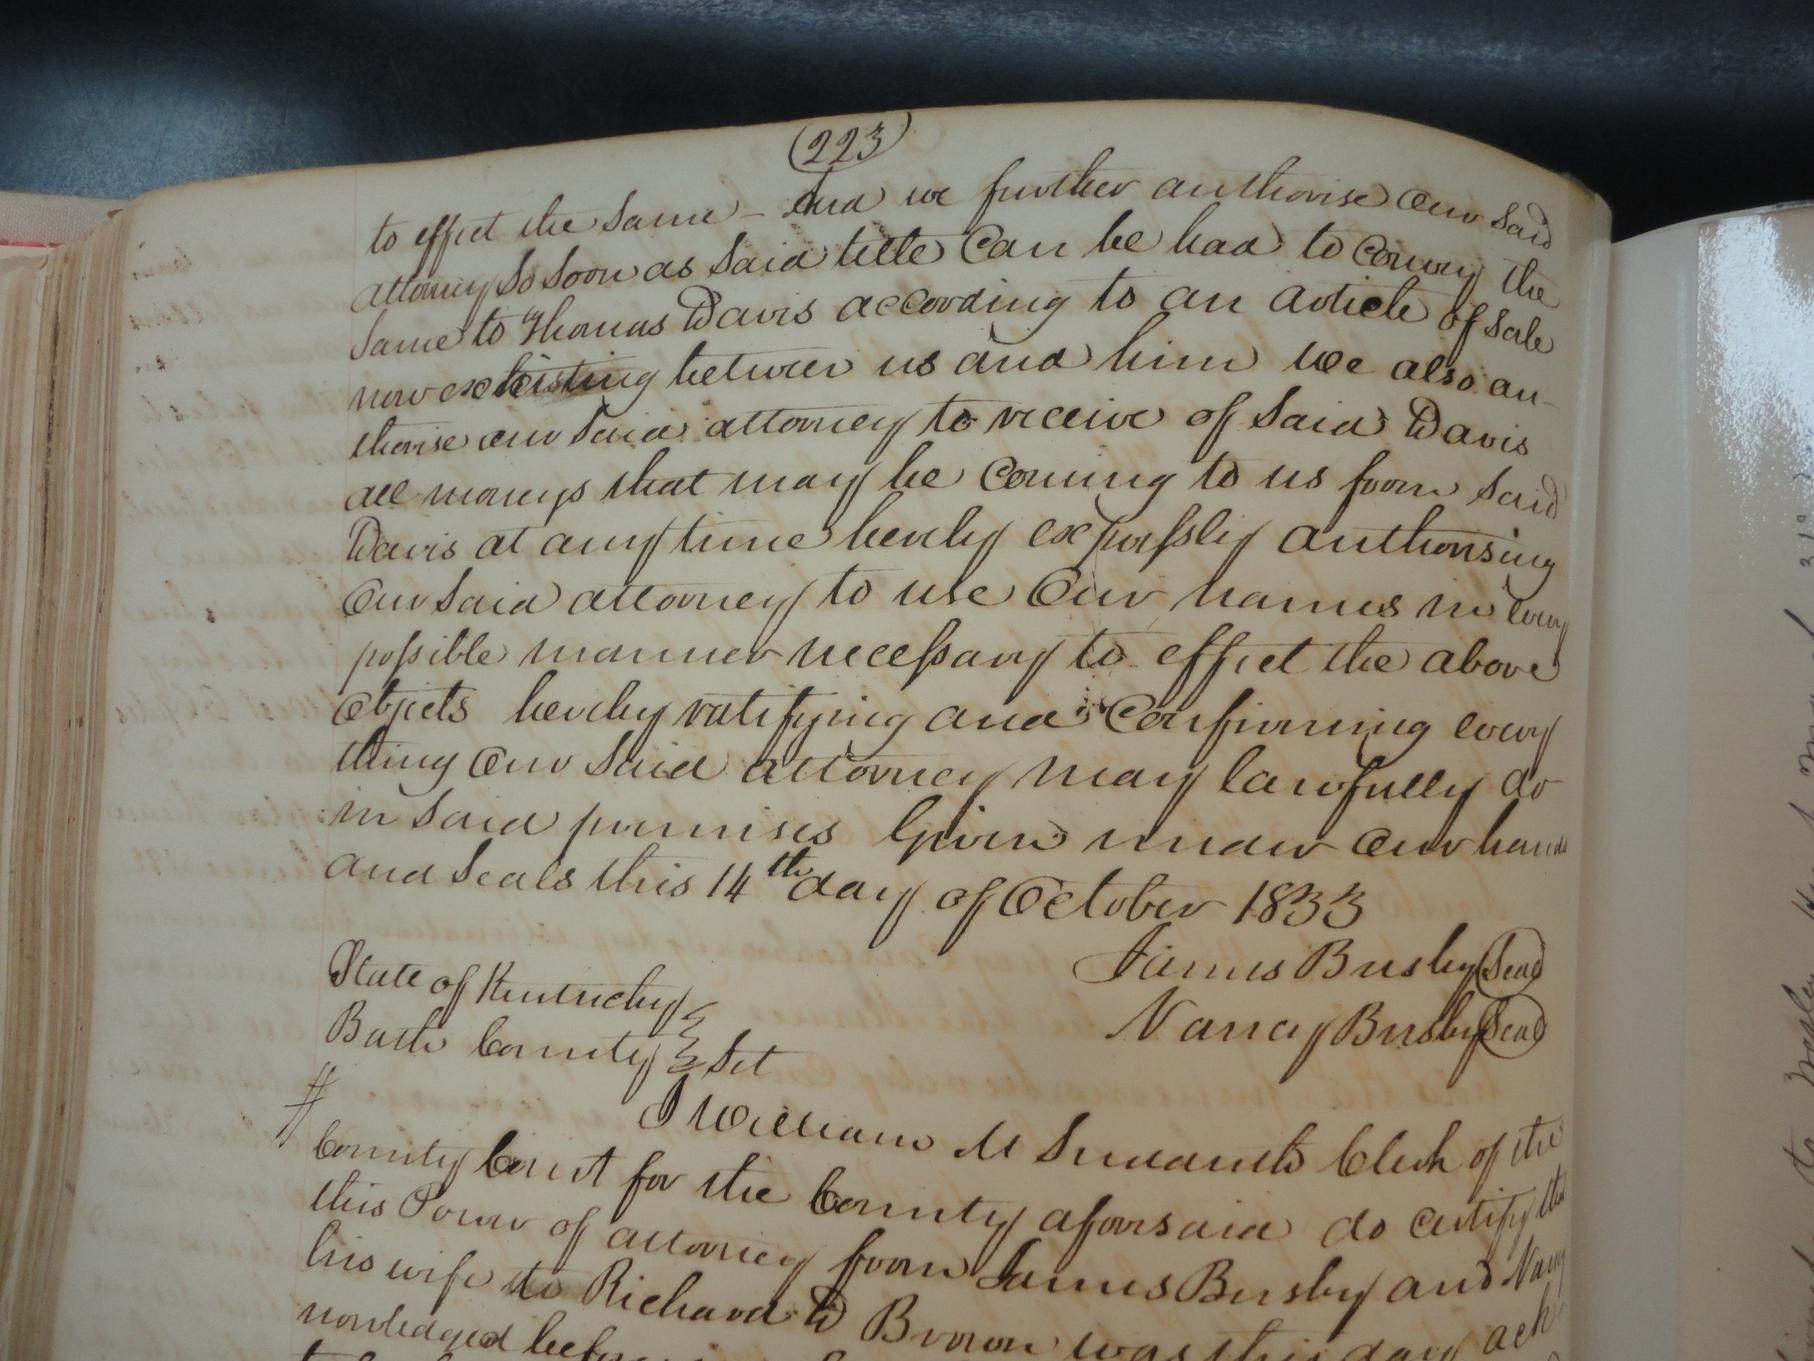 (223)
to effect the same - And we further authorise our said
attorney so soon as said title can be had to convey the
same to Thomas Davis according to an article of sale
now existing between us and him We also au-
thorise our said attorney to receive of said Davis
all moneys that may be coming to us from said
Davis at any time hereby expressly authorising
our said attorney to use our names in every
possible manner necessary to effect the above
objects hereby ratifying and confirming every
thing our said attorney may lawfully do
in said premises Given under our hands
and seals this 14th day of October 1833
James Busby (Seal)
Nancy Busby (Seal)
State of Kentucky
Bath County } Sct
I William M Clerk of the
County Court for the County aforesaid do certify that
this Power of attorney from James Busby and Nancy
his wife to Richard D Brown was this day ack
nowledged before